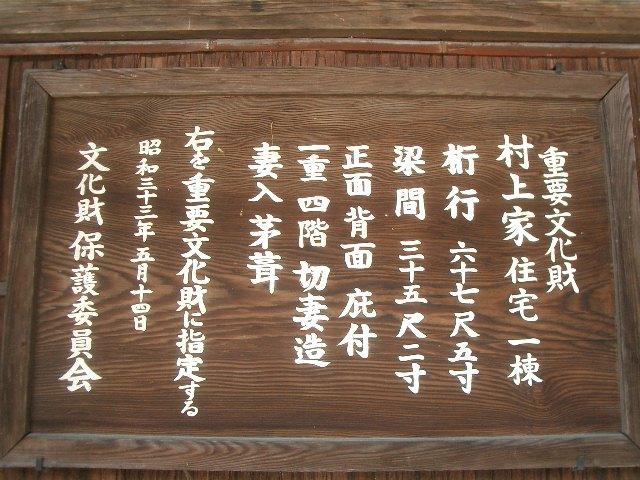 重要文化財
村上家住宅 一棟
桁行 六十七尺五寸
梁間 三十五尺二寸
正面 背面 庇付
一重 四階 切妻造
妻入 茅葺
右を重要文化財に指定する
昭和三十三年五月十四日
文化財保護委員会